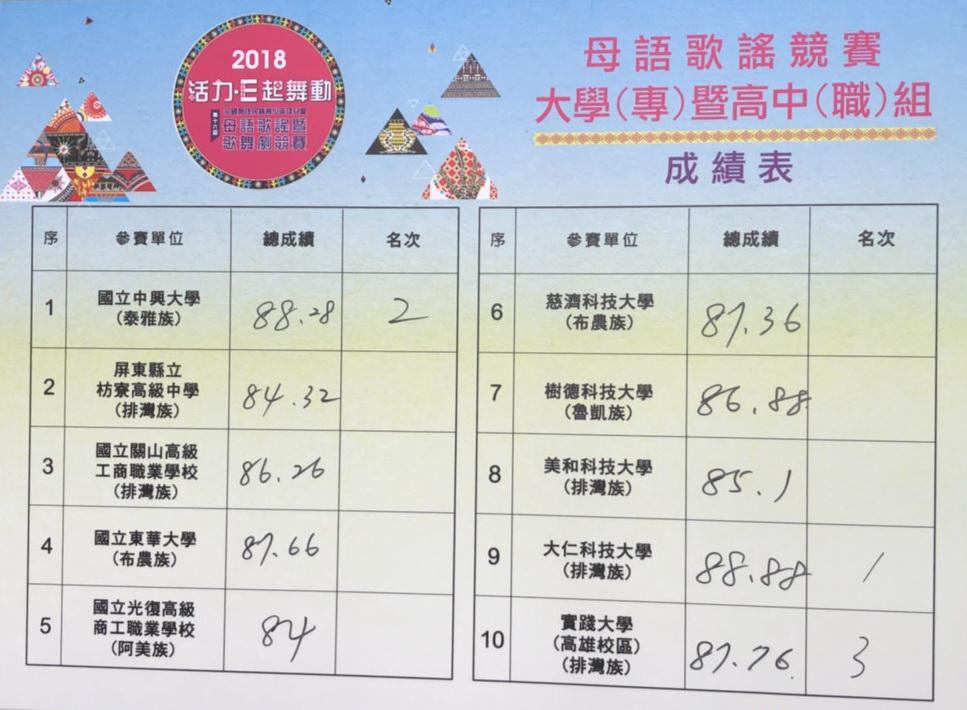 2018
活力·E起舞動
第十六屆
母語歌謠暨
歌舞劇競賽
母語歌謠競賽
大學(專)暨高中(職)組
成績表
序 參賽單位 總成績 名次
1 國立中興大學 (泰雅族) 88.28 2
2 屏東縣立 枋寮高級中學 (排灣族) 84.32
3 國立關山高級 工商職業學校 (排灣族) 86.26
4 國立東華大學 (布農族) 87.66
5 國立光復高級 商工職業學校 (阿美族) 84
序 參賽單位 總成績 名次
6 慈濟科技大學 (布農族) 87.36
7 樹德科技大學 (魯凱族) 86.88
8 美和科技大學 (排灣族) 85.1
9 大仁科技大學 (排灣族) 88.88 1
10 實踐大學 (高雄校區) (排灣族) 87.76 3